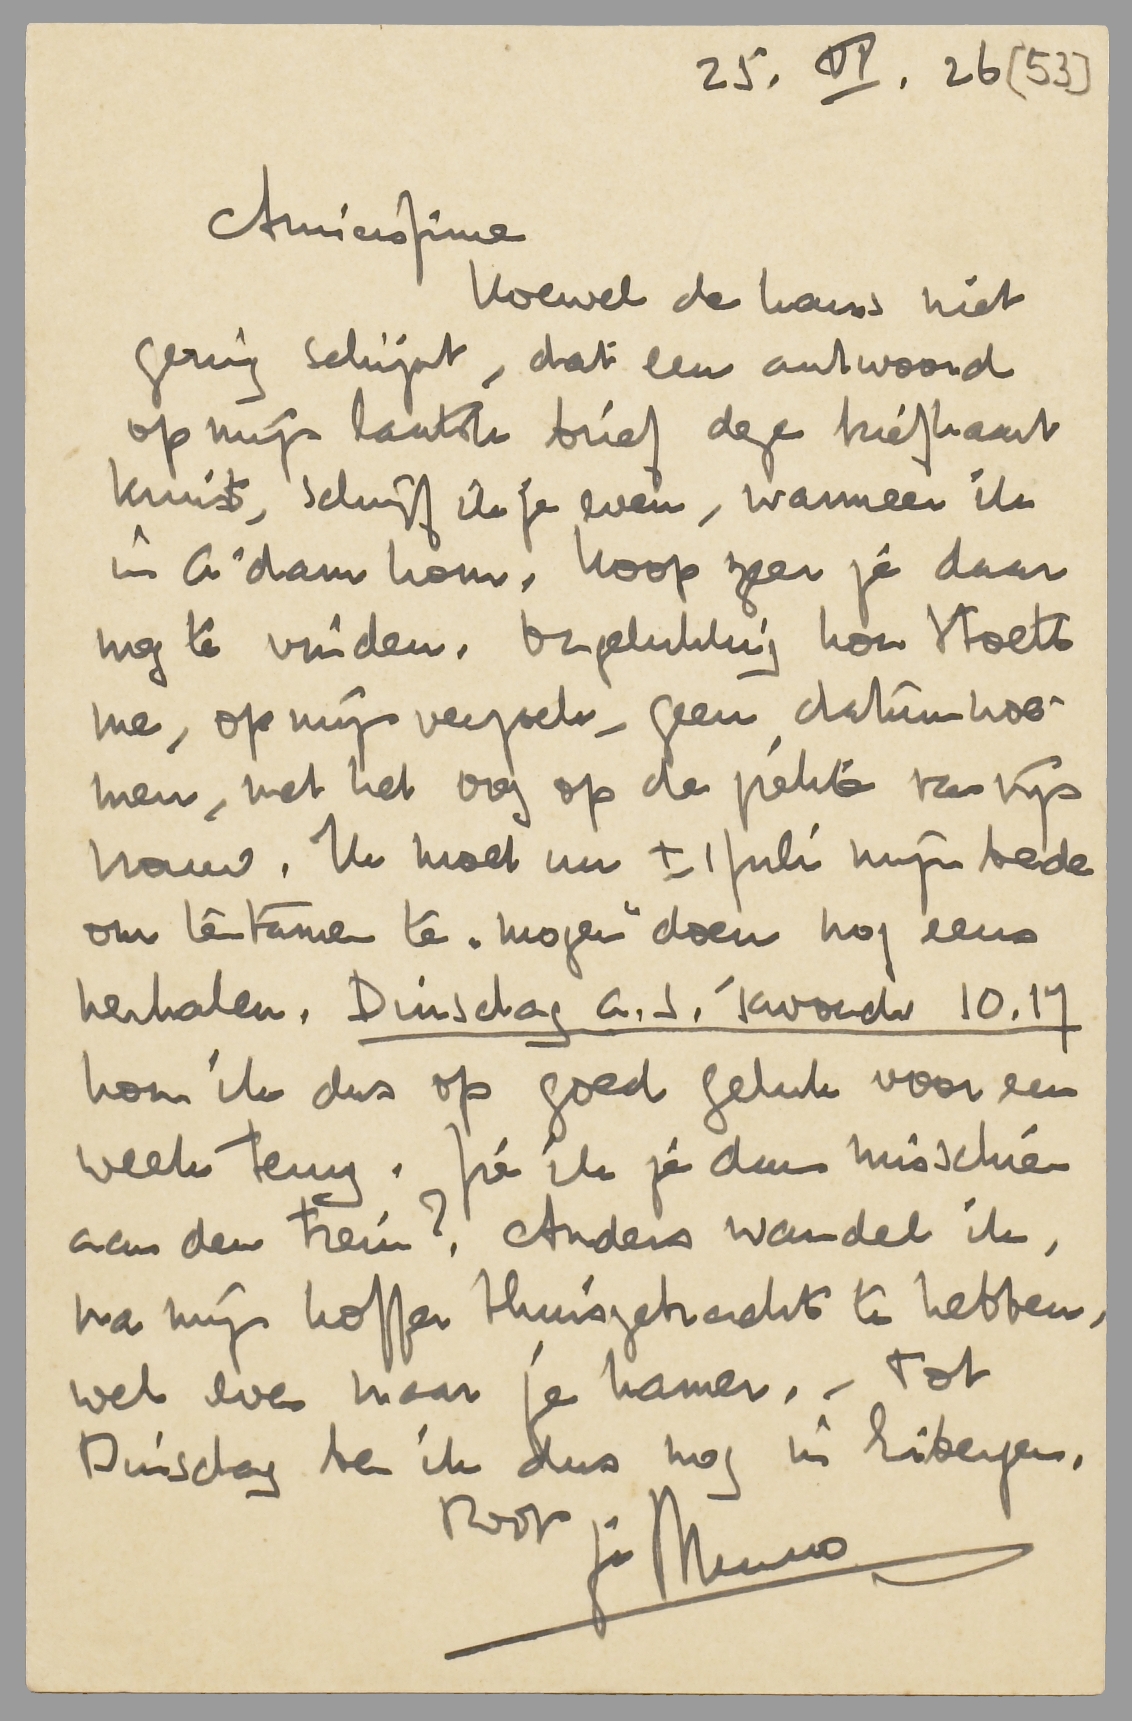 25. VI. 26 [53]
Amicissime
Hoewel de kans niet
gering schijnt, dat een antwoord
op mijn laatste brief deze briefkaart
kruist, schrijf ik je even, wanneer ik
in A'dam kom. Hoop zeer je daar
nog te vinden. Ongelukkig kon Stoett
me, op mijn verzoek, geen datum noe-
men, met het oog op de ziekte van zijn
vrouw. Ik moet nu ± 1 Juli mijn bede
om tentamen te "mogen" doen nog eens
herhalen. Dinsdag a.s. 's avonds 10.17
kom ik dus op goed geluk voor een
week terug. Zie ik je dan misschien
aan den trein? Anders wandel ik,
na mijn koffer thuisgebracht te hebben,
wel even naar je kamer. – Tot
Dinsdag ben ik dus nog in Eibergen.
Poot
je Menno